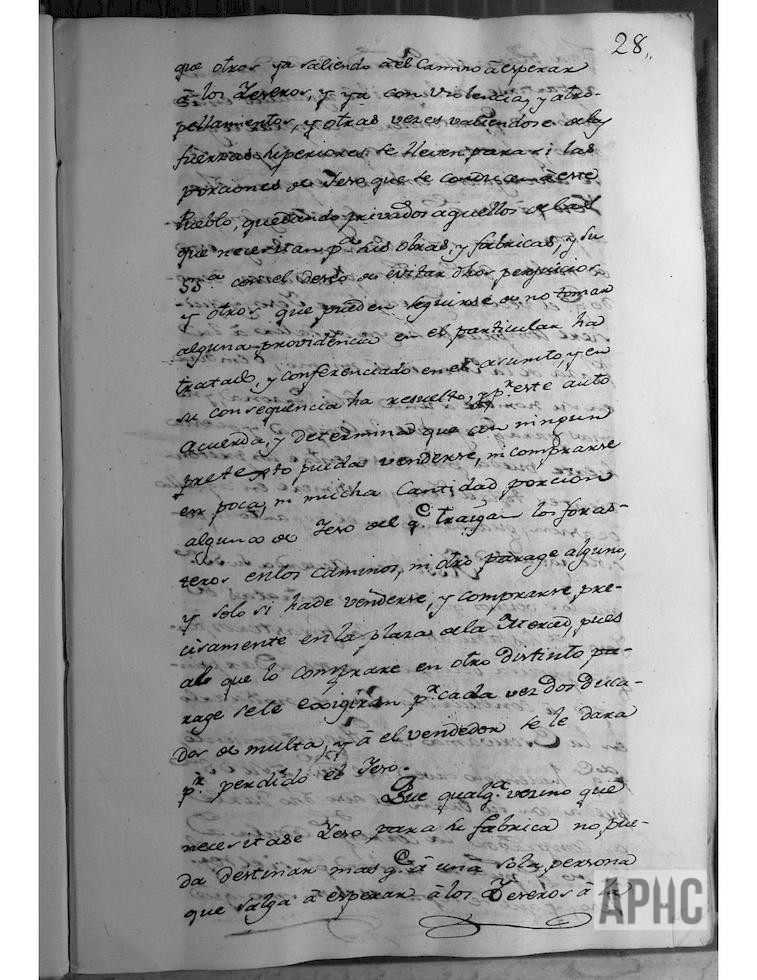 28,,
que otros ya saliendo â el Camino â esperar
â los Yeseros, y ya con violencias, y atro-
pellamientos, y otras veces valiendose de las
fuerzas superiores se lleven para si las
porciones de Yeso que se conducen â este
Pueblo, quedando privados aquellos de
que necesitan p.ª sus obras, y fabricas, y su
SS.ª con el deseo de evitar dhos perjuicios
y otros que pueden seguirse de no tomar
alguna providencia en el particular ha
tratado, y conferenciado en el asumto, y en
su consequencia ha resuelto, y p.r este auto
Acuerda, y determina que con ningun
pretexto pueda venderse, ni comprarse
en poca, ni mucha Cantidad porcion
alguna de Yeso del q.e traigan los foras-
teros en los caminos, ni otro parage alguno,
y solo si hade venderse, y comprarse, pre-
cisamente en la plaza dela Merced, pues
al que lo comprare en otro distinto pa-
rage sele exigiran p.r cada vez dos Duca-
dos de multa, y â el vendedor se le dara
p.r perdido el Yeso.
Que qualq.ª vecino que
necesitase Yeso para su fabrica no pue-
da destinar mas q.e â una sola persona
que salga â esperar â los Yeseros â la
APHC